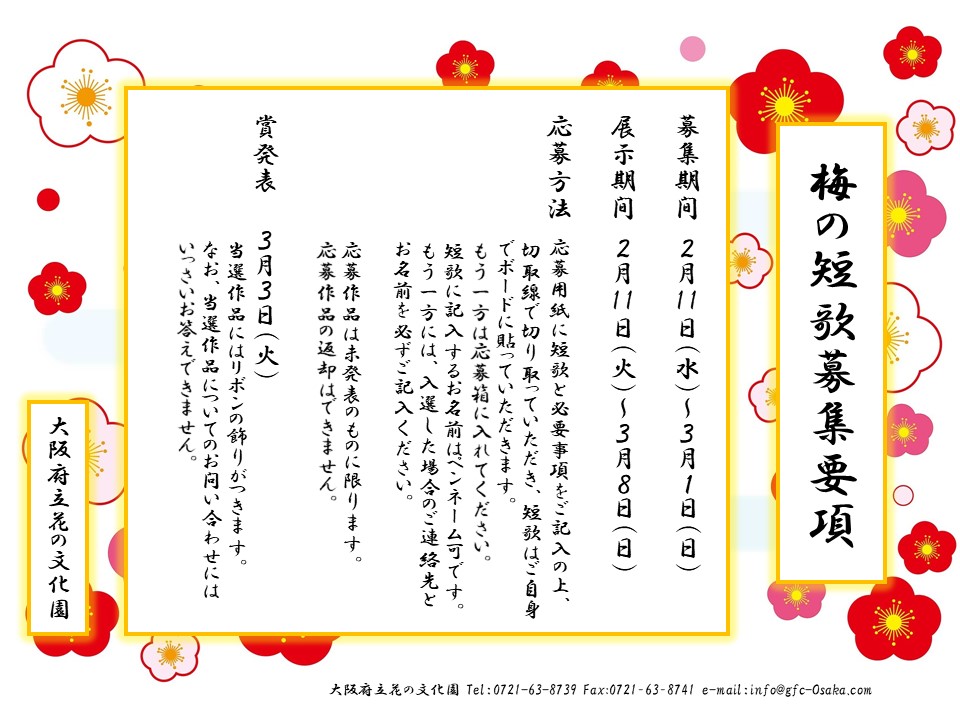 梅の短歌募集要項
募集期间 2月11日(水)～3月1日(日)
展示期间 2月11日(火)～3月8日(日)
応募方法 応募用紙に短歌と必要事項をご記入の上、
切取線で切り取っていただき、短歌はご自身
でボードに貼っていただきます。
もう一方は応募箱に入れてください。
短歌に記入するお名前はペンネーム可です。
もう一方には、入選した場合のご連絡先と
お名前を必ずご記入ください。
応募作品は未発表のものに限ります。
応募作品の返却はできません。
賞発表 3月3日(火)
当選作品にはリボンの飾りがつきます。
なお、当選作品についてのお问い合わせには
いっさいお答えできません。
大阪府立花の文化園
大阪府立花の文化園 Tel:0721-63-8739 Fax:0721-63-8741 e-mail:info@gfc-Osaka.com